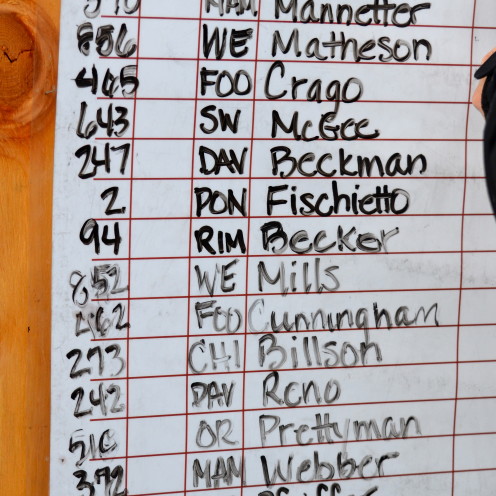 MAM Mannetter
856 WE Matheson
465 FOO Crago
643 SW McGee
247 DAV Beckman
2 PON Fischietto
94 RIM Becker
852 WE Mills
462 FOO Cunningham
273 CHI Billson
242 DAV Reno
OR Prettyman
372 MAM Webber